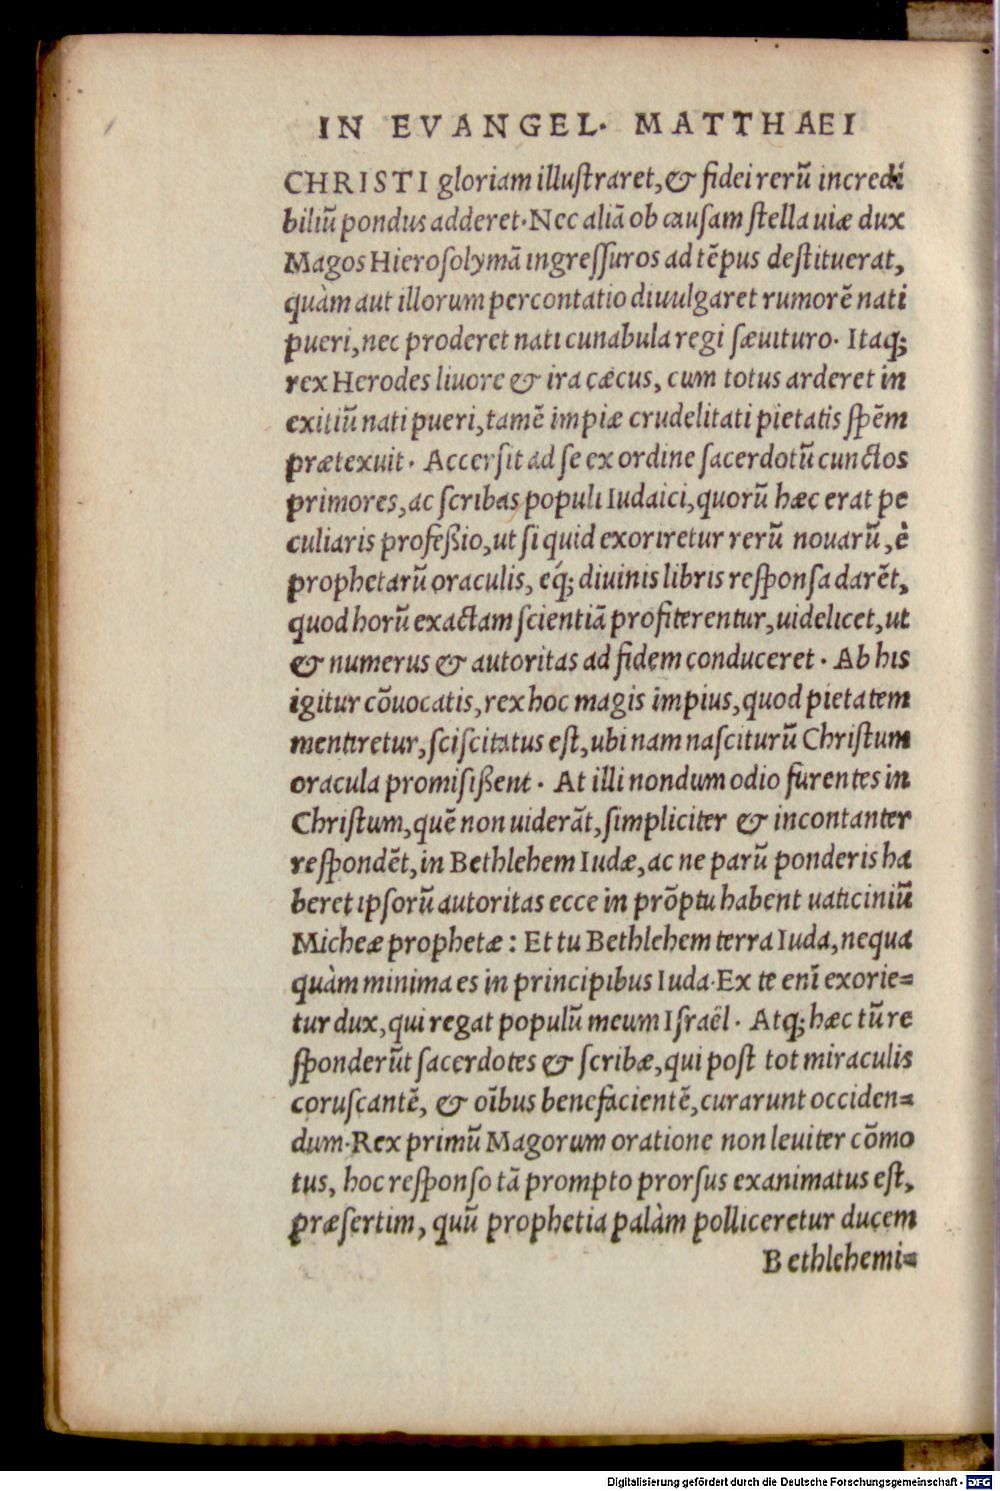 IN EVANGEL· MATTHAEI
CHRISTI gloriam illuſtraret, & fidei rerū incredi
biliū pondus adderet·Nec aliā ob cauſam ſtella uiæ dux
Magos Hieroſolymā ingreſſuros ad tēpus deſtituerat,
quàm aut illorum percontatio diuulgaret rumorē nati
pueri, nec proderet nati cunabula regi ſæuituro· Itaq;
rex Herodes liuore & ira cæcus, cum totus arderet in
exitiū nati pueri, tamē impiæ crudelitati pietatis ſpēm
prætexuit· Accerſit ad ſe ex ordine ſacerdotū cunctos
primores, ac ſcribas populi Iudaici, quorū hæc erat pe
culiaris profeßio, ut ſi quid exoriretur rerū nouarū, è
prophetarū oraculis, eq́; diuinis libris reſponſa darēt,
quod horū exactam ſcientiā profiterentur, uidelicet, ut
& numerus & autoritas ad fidem conduceret· Ab his
igitur cōuocatis, rex hoc magis impius, quod pietatem
mentiretur, ſciſcitatus eſt, ubi nam naſciturū Chriſtum
oracula promiſißent· At illi nondum odio furentes in
Chriſtum, quē non uiderāt, ſimpliciter & incontanter
reſpondēt, in Bethlehem Iudæ, ac ne parū ponderis ha
beret ipſorū autoritas ecce in prōptu habent uaticiniū
Micheæ prophetæ: Et tu Bethlehem terra Iuda, nequa
quàm minima es in principibus Iuda·Ex te enī exorie=
tur dux, qui regat populū meum Iſraël· Atq; hæc tū re
ſponderūt ſacerdotes & ſcribæ, qui poſt tot miraculis
coruſcantē, & oībus benefacientē, curarunt occiden=
dum·Rex primū Magorum oratione non leuiter cōmo
tus, hoc reſponſo tā prompto prorſus exanimatus eſt,
præſertim, quū prophetia palàm polliceretur ducem
Bethlehemi=
Digitalisierung gefördert durch die Deutsche Forschungsgemeinschaft - DFG